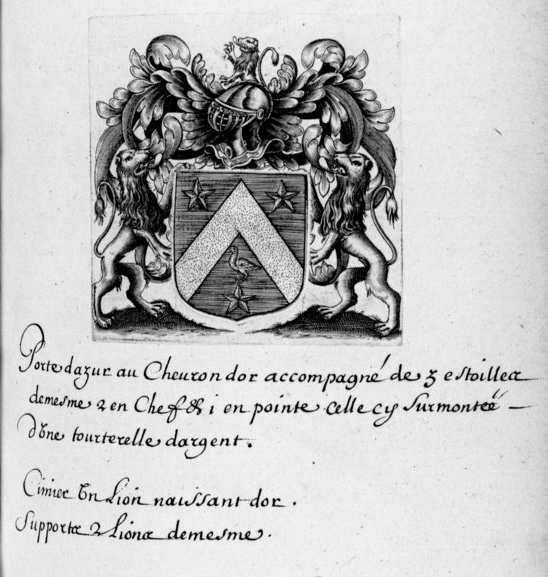 Porte dazur au Cheuron dor accompagné de 3 estoilles
demesme 2 en Chef & 1 en pointe celle cy surmontée
dvne tourterelle dargent.
Cimier vn Lion naissant dor.
Supports 2 Lions demesme.